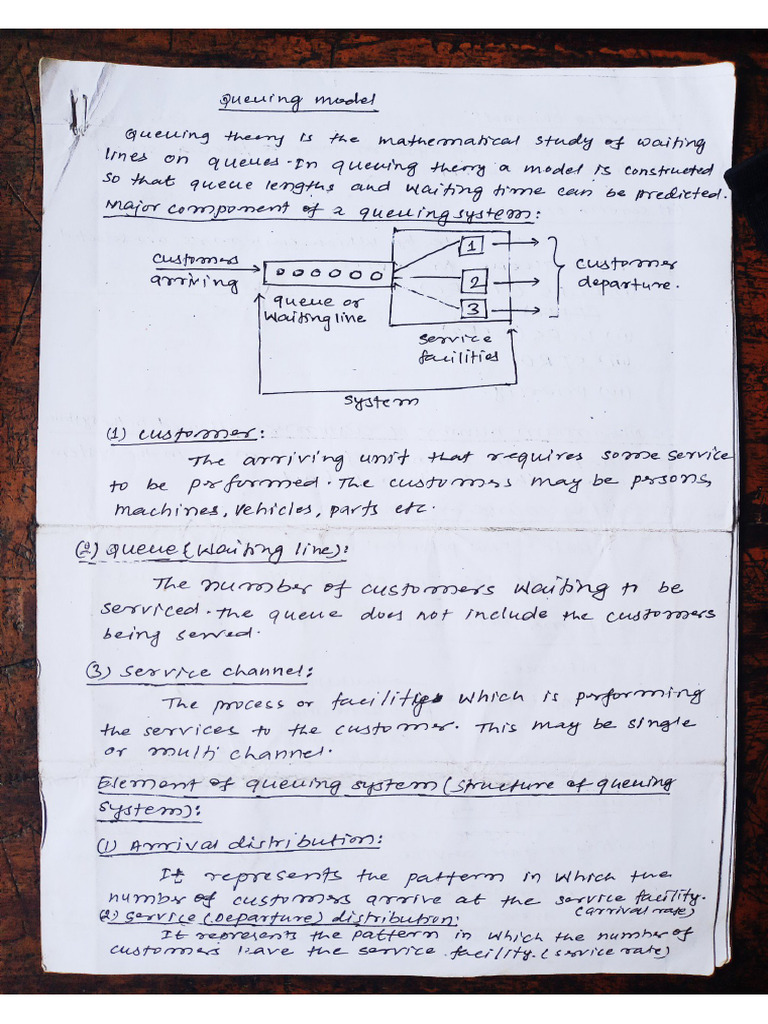 Queuing model
Queuing theory is the mathematical study of waiting
lines on queues. In queuing theory a model is constructed
so that queue lengths and waiting time can be predicted.
Major component of a queuing system:
customers
arriving
queue or
Waiting line
1
2
3
customer
departure.
service
facilities
system
(1) customer:
The arriving unit that requires some service
to be performed. The customers may be persons,
machines, vehicles, parts etc.
(2) Queue (Waiting line):
The number of customers waiting to be
serviced. The queue does not include the customers
being served.
(3) Service channel:
The process or facilities which is performing
the services to the customer. This may be single
or multi channel.
Element of queuing system (structure of queuing
system):
(1) Arrival distribution:
It represents the pattern in which the
number of customers arrive at the service facility.
(arrival rate)
(2) Service (Departure) distribution:
It represents the pattern in which the number of
customers leave the service facility. (service rate)